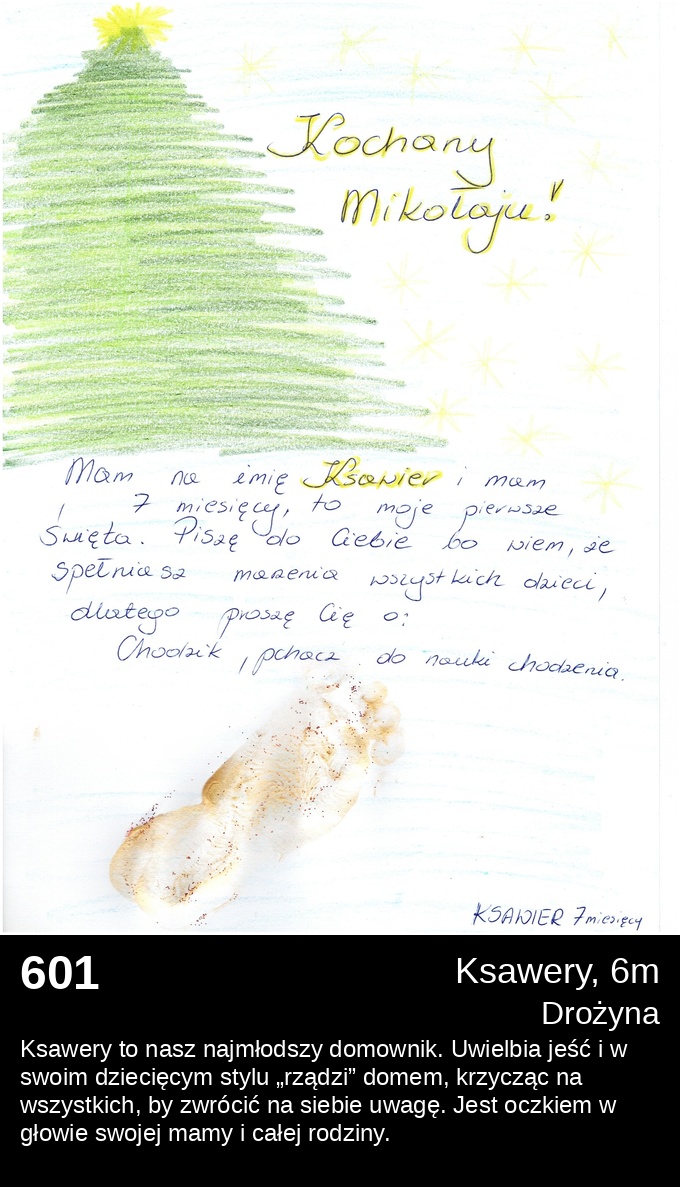 Kochany
Mikołaju!
Mam na imię Ksawier i mam
7 miesięcy, to moje pierwsze
Święta. Piszę do Ciebie bo wiem, że
spełniasz marzenia wszystkich dzieci,
dlatego proszę Cię o:
Chodzik, pchacz do nauki chodzenia.
KSAWIER 7 miesięcy
601
Ksawery, 6m
Drożyna
Ksawery to nasz najmłodszy domownik. Uwielbia jeść i w
swoim dziecięcym stylu „rządzi” domem, krzycząc na
wszystkich, by zwrócić na siebie uwagę. Jest oczkiem w
głowie swojej mamy i całej rodziny.